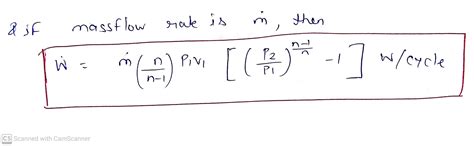 & if massflow rate is ṁ, then
Ẇ = ṁ (n/n-1) P₁V₁ [ (P₂/P₁)^(n-1/n) - 1 ] W/cycle
CS Scanned with CamScanner